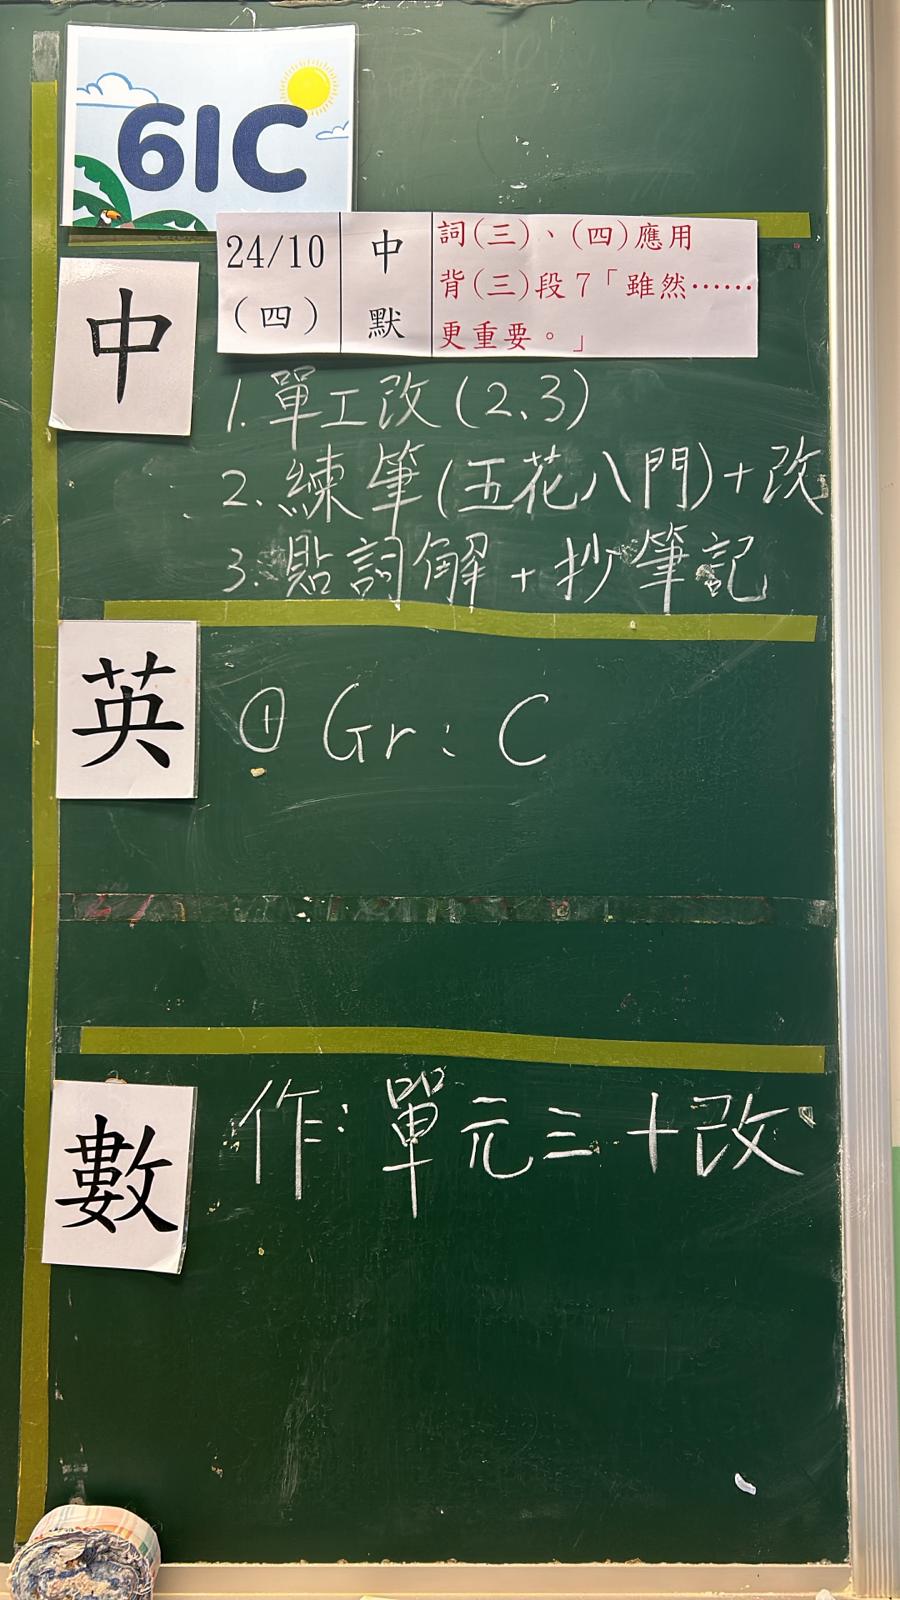 61C
24/10
(四)
中
默
詞(三)、(四)應用
背(三)段7「雖然……
更重要。」
中
1. 單工改(2、3)
2. 練筆(五花八門)+改
3. 貼詞解+抄筆記
英
① Gr: C
數
作: 單元三+改